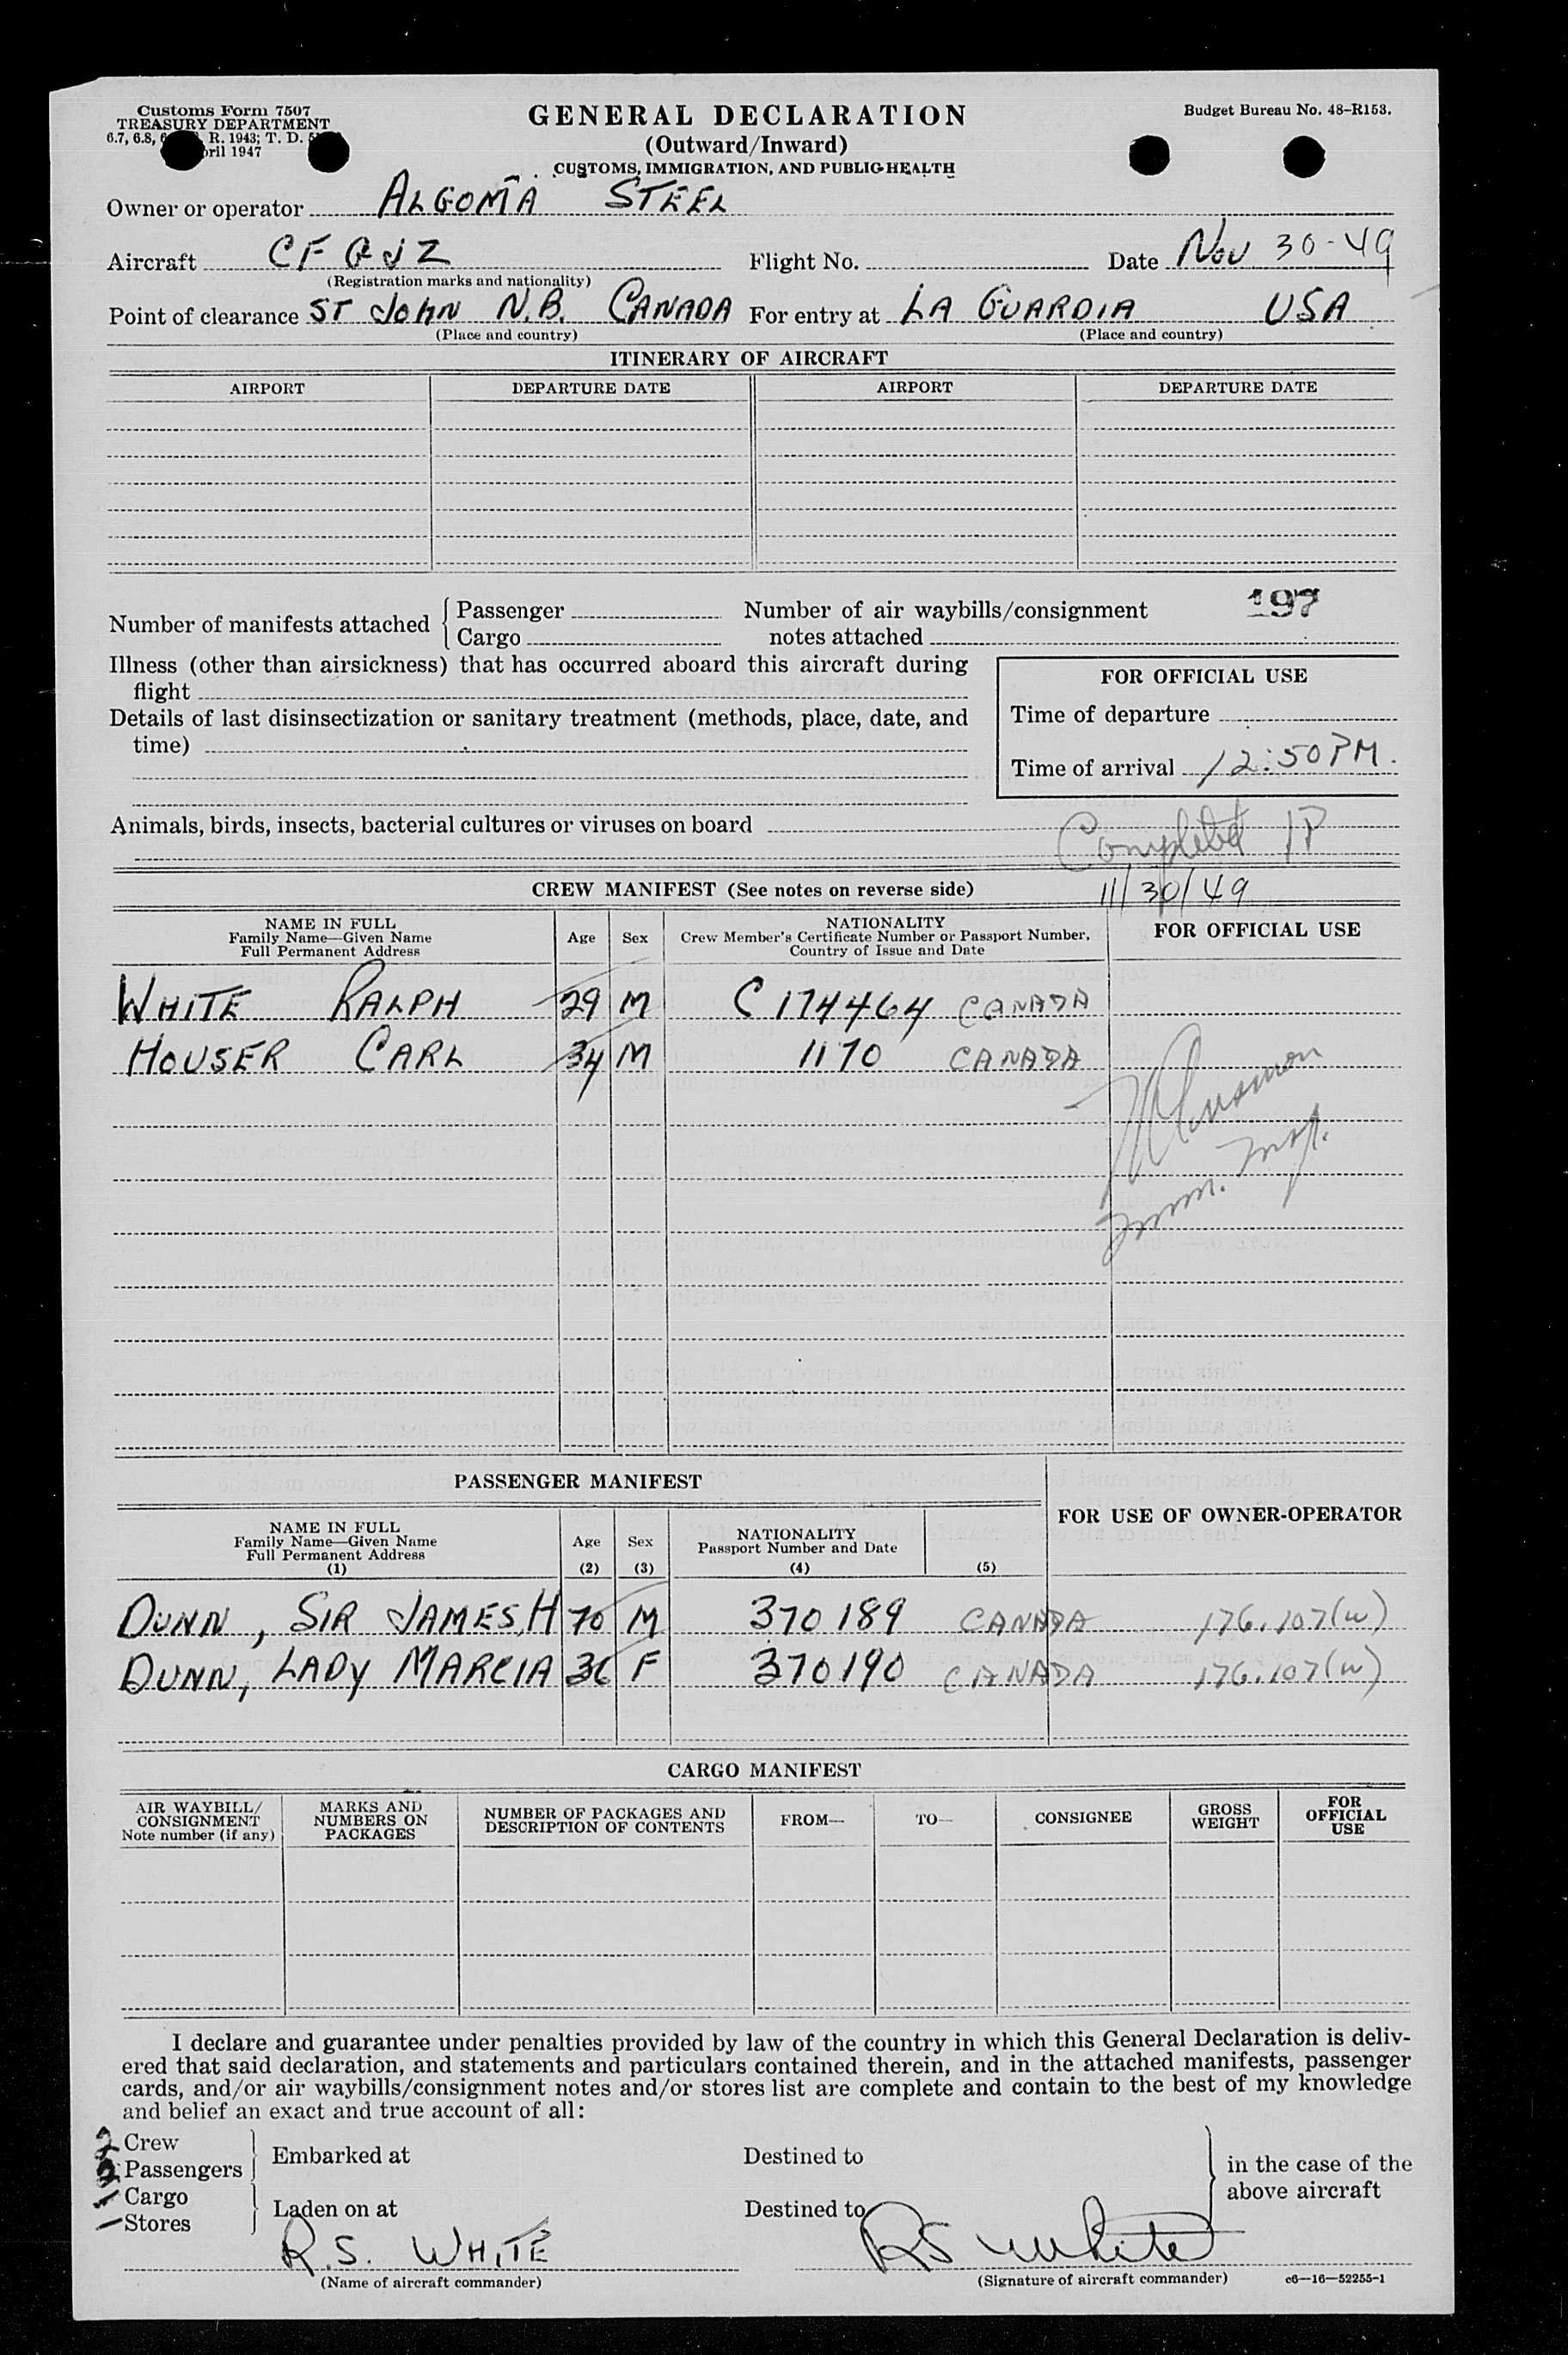 Customs Form 7507
TREASURY DEPARTMENT
6.7, 6.8, R. 1943; T. D.
ril 1947
GENERAL DECLARATION
(Outward/Inward)
CUSTOMS, IMMIGRATION, AND PUBLIC HEALTH
Budget Bureau No. 48-R153.
Owner or operator ALGOMA STEEL
Aircraft CF GJZ Flight No. Date NOV 30-49
(Registration marks and nationality)
Point of clearance ST JOHN N.B. CANADA For entry at LA GUARDIA USA
(Place and country) (Place and country)
ITINERARY OF AIRCRAFT
AIRPORT DEPARTURE DATE AIRPORT DEPARTURE DATE
197
Number of manifests attached { Passenger Number of air waybills/consignment
Cargo notes attached
Illness (other than airsickness) that has occurred aboard this aircraft during
flight
Details of last disinsectization or sanitary treatment (methods, place, date, and
time)
FOR OFFICIAL USE
Time of departure
Time of arrival 12:50 PM.
Animals, birds, insects, bacterial cultures or viruses on board
Completed 1P
11/30/49
CREW MANIFEST (See notes on reverse side)
NAME IN FULL
Family Name—Given Name
Full Permanent Address
Age Sex
NATIONALITY
Crew Member's Certificate Number or Passport Number,
Country of Issue and Date
FOR OFFICIAL USE
WHITE RALPH 29 M C 174464 CANADA
HOUSER CARL 34 M 1170 CANADA
Imm. Insp.
PASSENGER MANIFEST
FOR USE OF OWNER-OPERATOR
NAME IN FULL
Family Name—Given Name
Full Permanent Address
(1)
Age
(2)
Sex
(3)
NATIONALITY
Passport Number and Date
(4)
(5)
DUNN, SIR JAMES, H 70 M 370189 CANADA 176.107(w)
DUNN, LADY MARCIA 36 F 370190 CANADA 176.107(w)
CARGO MANIFEST
AIR WAYBILL/
CONSIGNMENT
Note number (if any)
MARKS AND
NUMBERS ON
PACKAGES
NUMBER OF PACKAGES AND
DESCRIPTION OF CONTENTS
FROM—
TO—
CONSIGNEE
GROSS
WEIGHT
FOR
OFFICIAL
USE
I declare and guarantee under penalties provided by law of the country in which this General Declaration is deliv-
ered that said declaration, and statements and particulars contained therein, and in the attached manifests, passenger
cards, and/or air waybills/consignment notes and/or stores list are complete and contain to the best of my knowledge
and belief an exact and true account of all:
2 Crew
2 Passengers
Embarked at Destined to
— Cargo
— Stores
Laden on at Destined to
in the case of the
above aircraft
R.S. WHITE RS White
(Name of aircraft commander) (Signature of aircraft commander) c6—16—52255-1